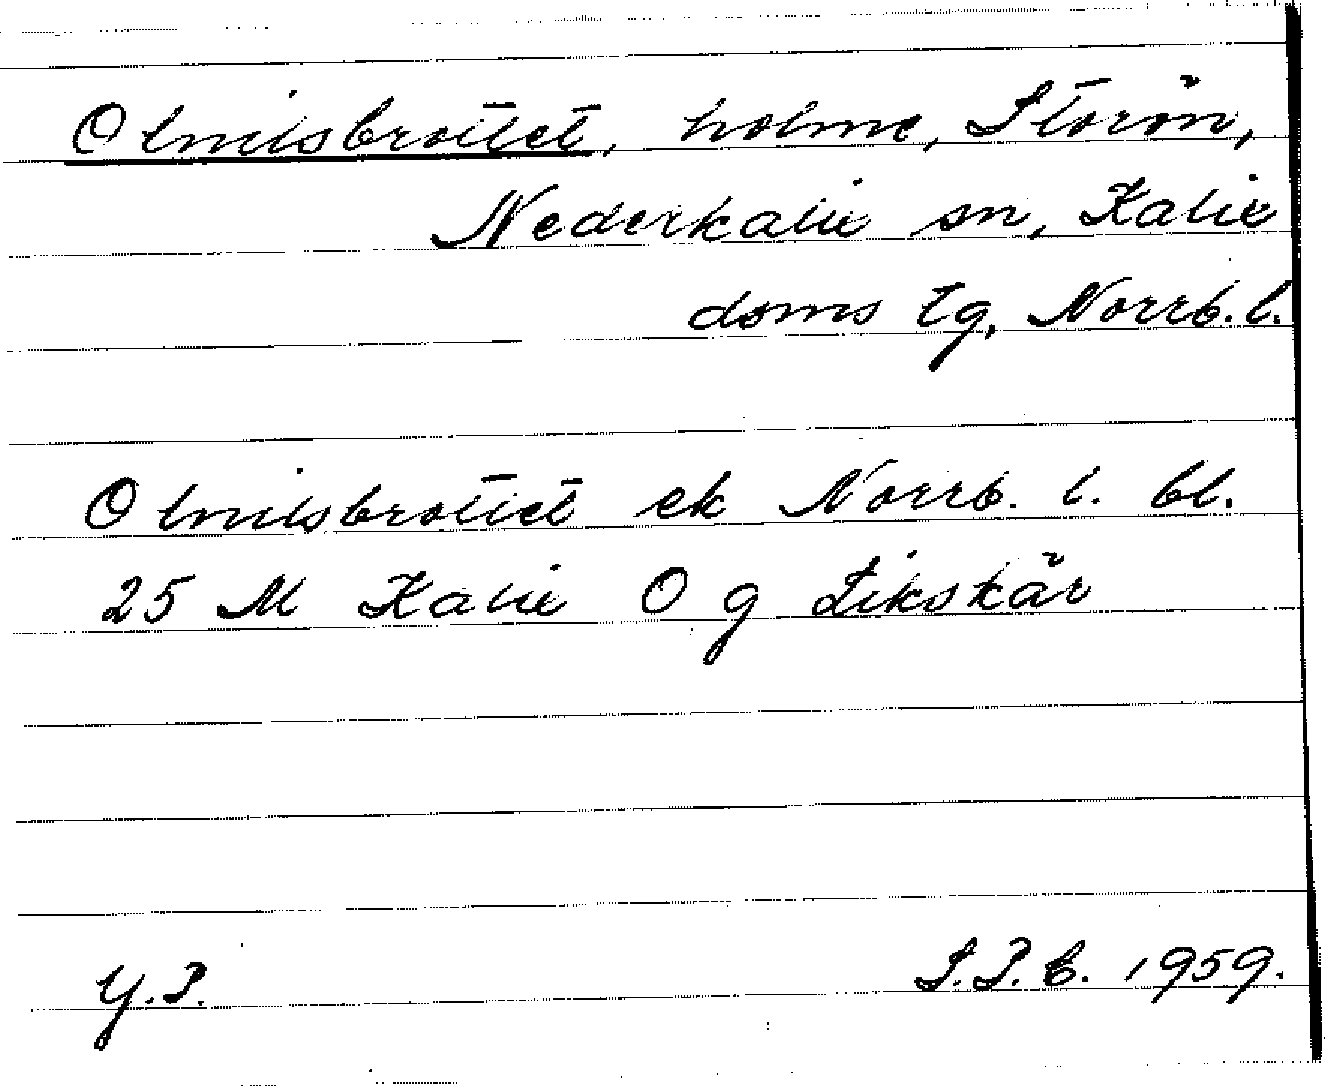 Olmilsbrottet, holme, Storön,
Nederkalix sn, Kalix
doms tg, Norrb. l.
Olmilsbrottet ek Norrb. l. bl.
25 M Kalix O g Likskär
Y.P. S.P.E. 1959.